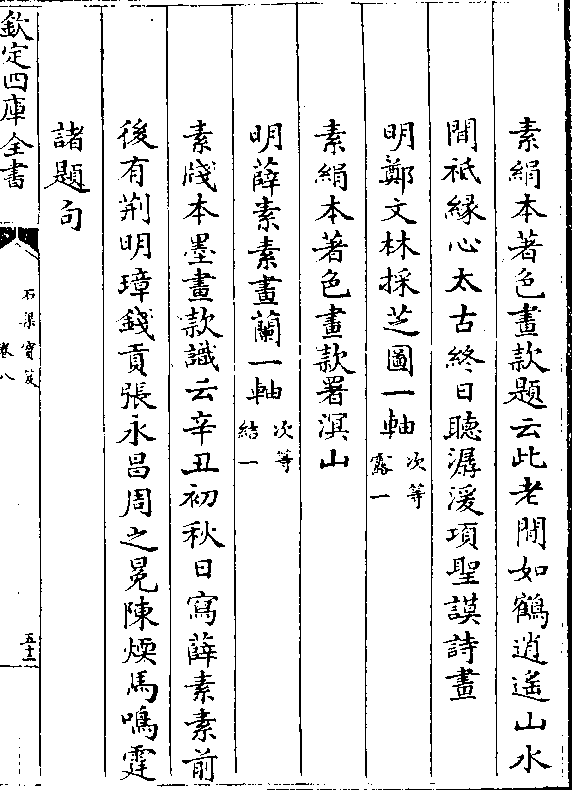 素絹本著色畫款題云此老閒如鶴逍遙山水
間祗緣心太古終日聽潺湲項聖謨詩畫
明鄭文林採芝圖一軸 次等 露一
素絹本著色畫款署溟山
明薛素素畫蘭一軸 次等 結一
素牋本墨畫款識云辛丑初秋日寫薛素素前
後有荆明璋錢貢張永昌周之冕陳煗馬鳴霆
諸題句
欽定四庫全書
石渠寶笈
卷八
五十二